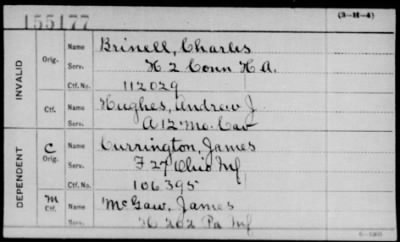 155177 (3-H-4)
INVALID
Orig. Name Brinell, Charles
Serv. H 2 Conn H A.
Ctf. No. 112029
Ctf. Name Hughes, Andrew J.
Serv. A 12 Mo. Cav
DEPENDENT
C Orig. Name Currington, James
Serv. F 27 Ohio Inf
Ctf. No. 106395
M Ctf. Name McGaw, James
Serv. H 202 Pa Inf